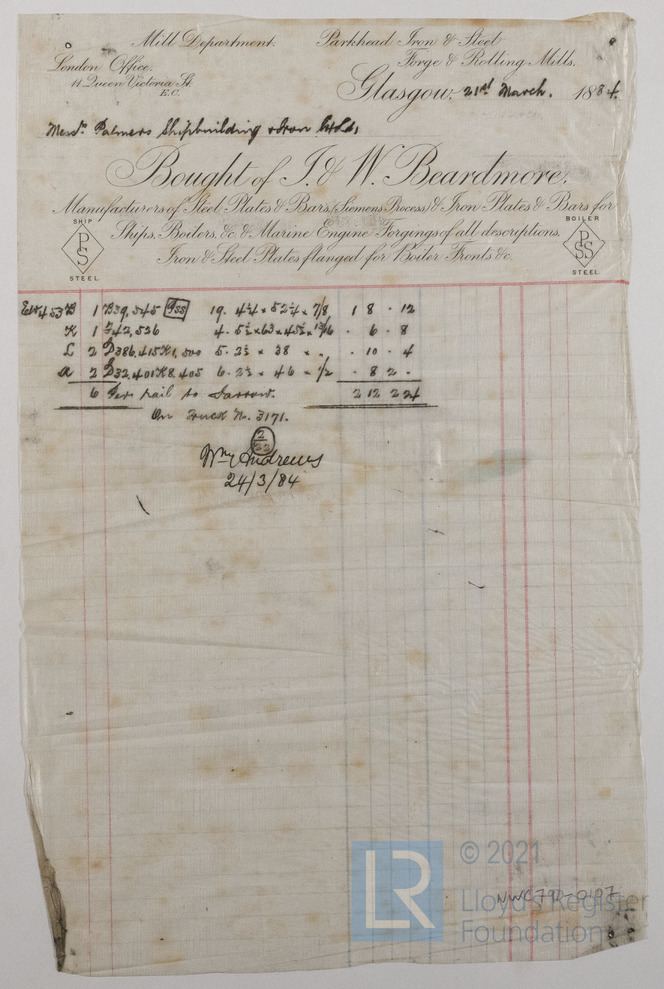 Mill Department. Parkhead Iron & Steel
Forge & Rolling Mills.
London Office.
11 Queen Victoria St.
E.C.
Glasgow, 21st March. 1884.
Messrs Palmers Shipbuilding & Iron Co Ld,
Bought of J. & W. Beardmore.
Manufacturers of Steel Plates & Bars, (Siemens Process) & Iron Plates & Bars for
Ships, Boilers, &c. & Marine Engine Forgings of all descriptions.
Iron & Steel Plates flanged for Boiler Fronts &c.
SHIP
PS
STEEL
BOILER
PSS
STEEL
453 B 1 B39,545 PSS 19. 4¼ × 52¼ × 7/8 1 8 . 12
K 1 42,536 4. 5½ × 63 × 45½ × 13/16 . 6 . 8
L 2 D386,415 K1,500 5. 2½ × 38 × " . 10 . 4
2 D32,401 K8,405 6. 2½ × 46 × ½ . 8 2 .
6 Per rail to Jarrow. 2 12 2 24
On Truck No. 3171.
2
22
Wm Andrews
24/3/84
LR
© 2021
Lloyd's Register
Foundation
NWC792-0197